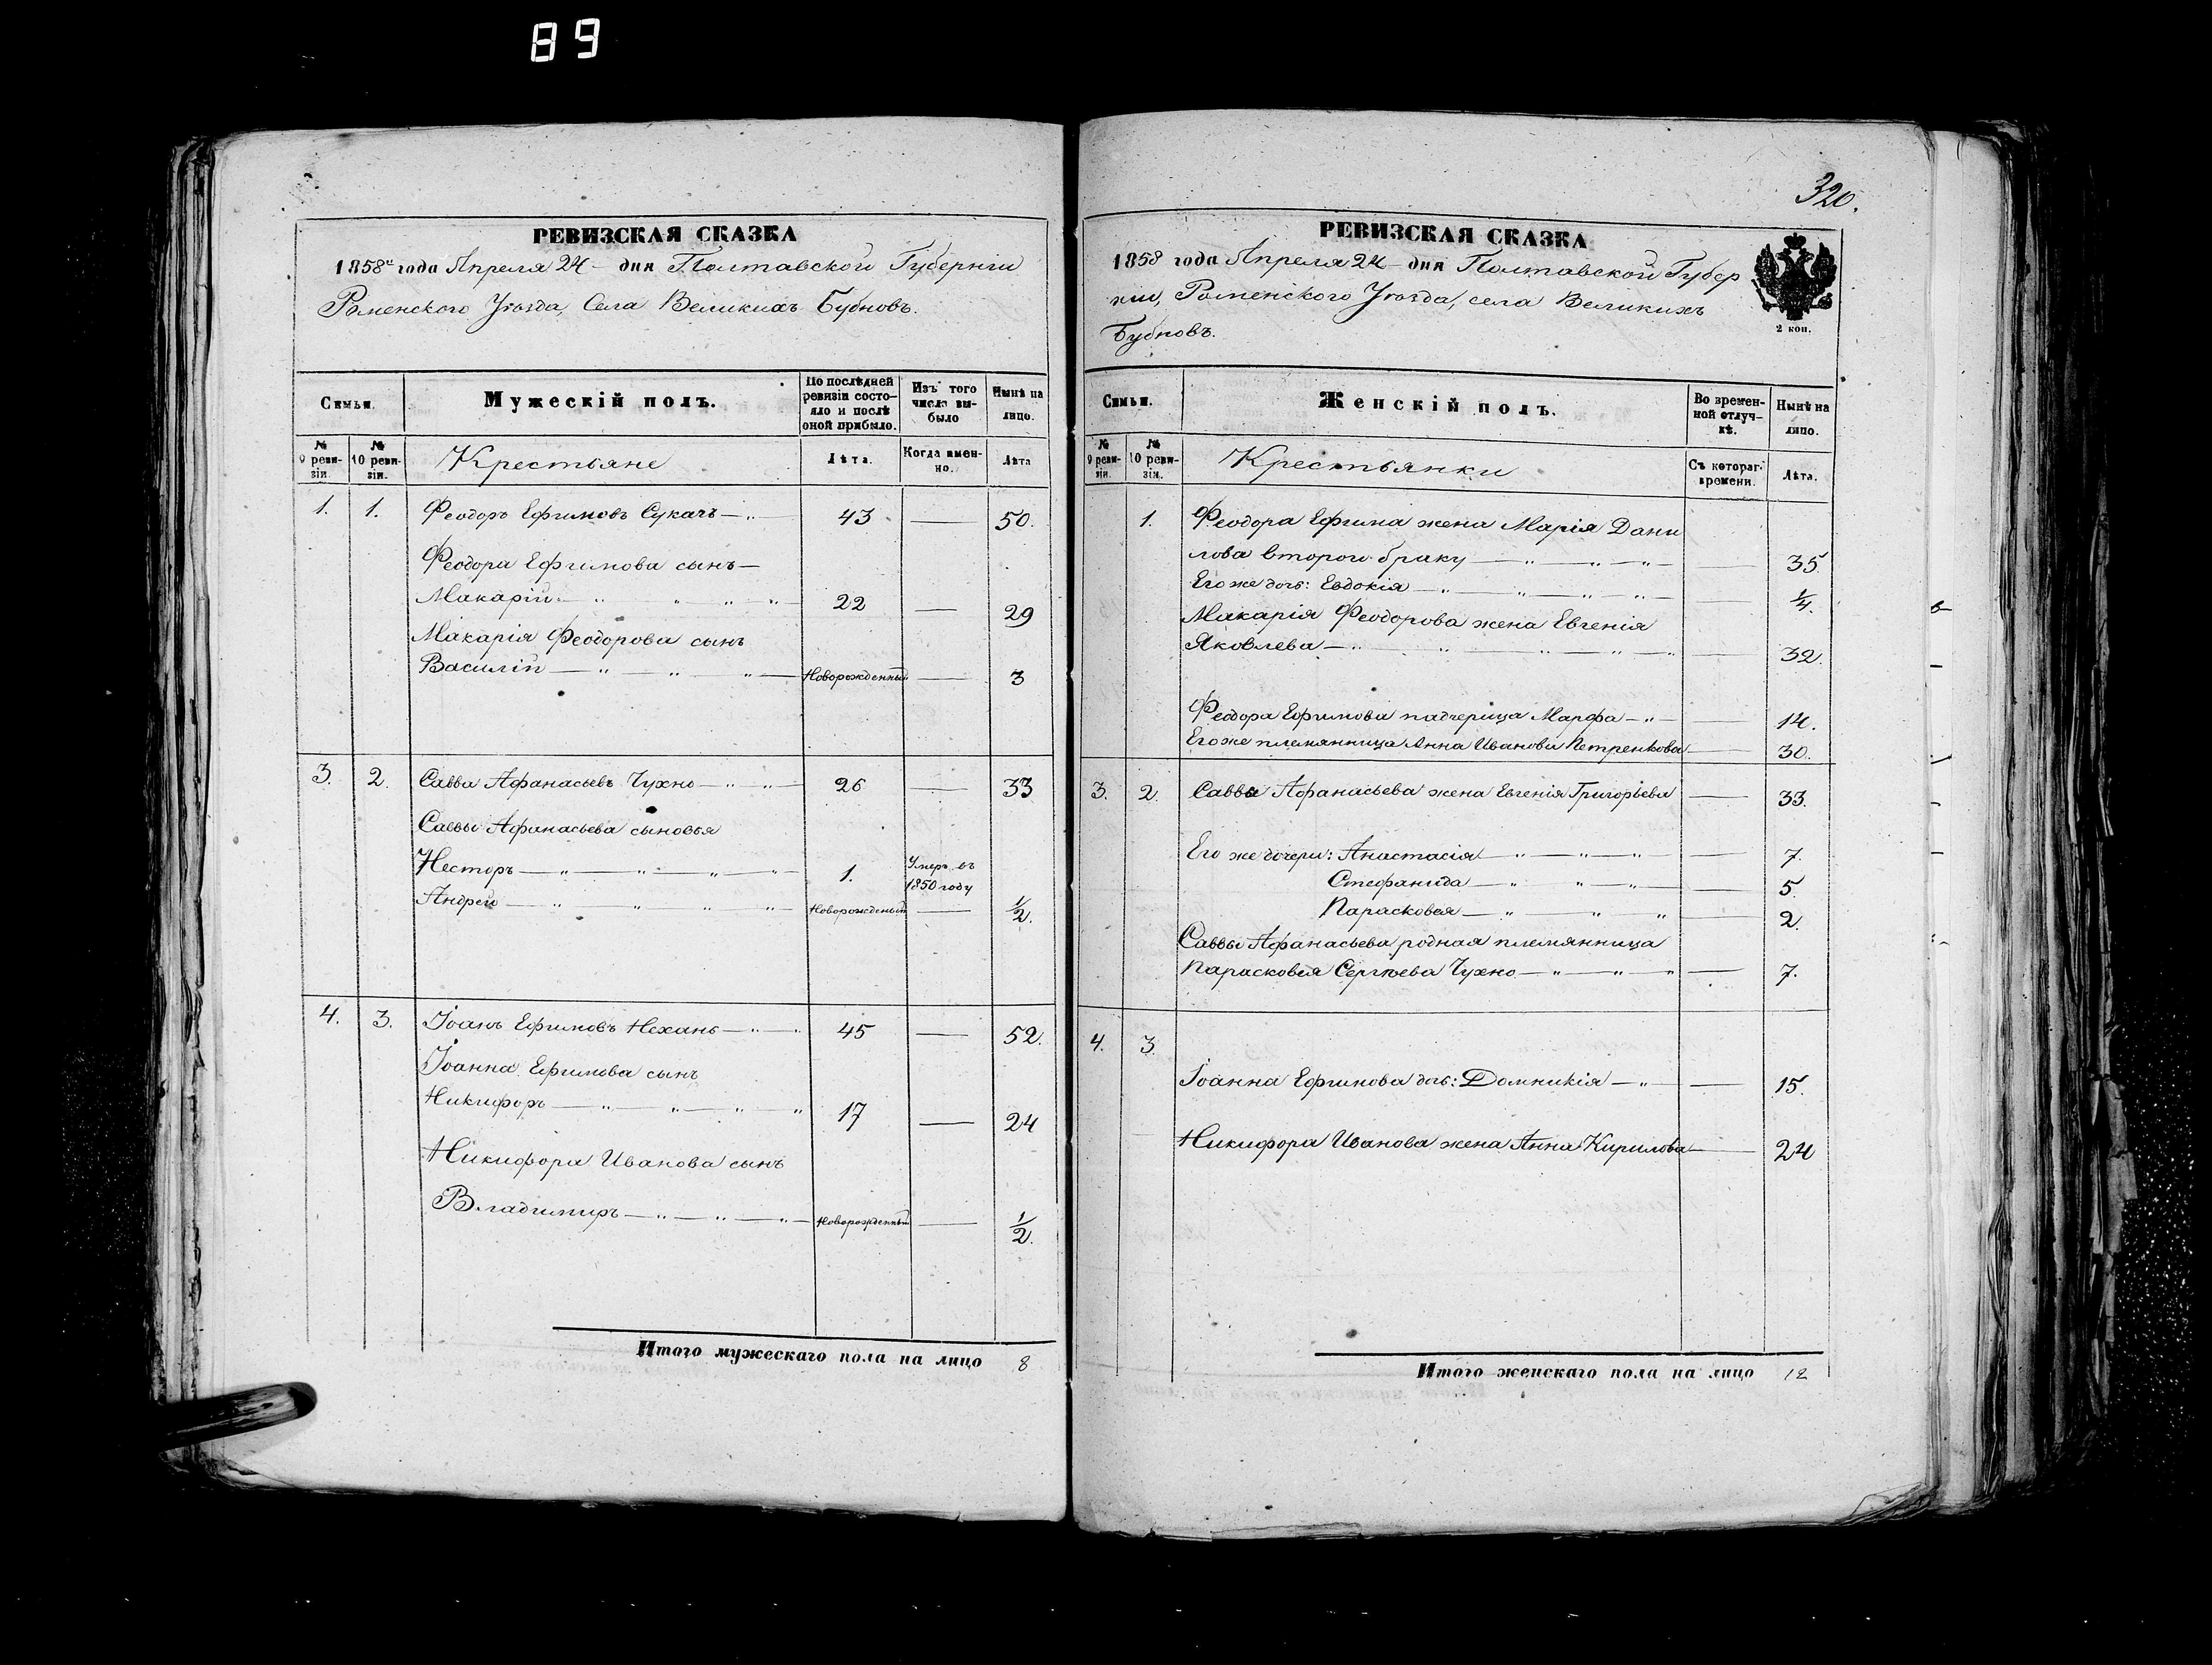 89
РЕВИЗСКАЯ СКАЗКА
1858го года Апреля 24 дня Полтавской Губерніи
Роменского Уѣзда, Села Великихъ Бубновъ.
Семьи.
Мужескій полъ.
По послѣдней ревизіи состо-яло и послѣ оной прибыло.
Изъ того числа вы-было
Нынѣ на лицо.
№ 9 реви-зіи.
№ 10 реви-зіи.
Крестьяне
Лѣта.
Когда имен-но.
Лѣта
1. 1. Феодоръ Ефимовъ Сукачъ — „ — 43 — 50.
Феодора Ефимова сынъ —
Макарій — „ „ — „ — „ — 22 — 29
Макарія Феодорова сынъ
Василій — „ — „ — „ — Новорожденный — 3
3. 2. Савва Афанасьевъ Чухно — „ — „ — 26 — 33
Саввы Афанасьева сыновья
Несторъ — „ — „ — „ — „ — 1. Умеръ въ 1850 году
Андрей — „ — „ — „ — „ — Новорожденый — 1/2.
4. 3. Іоанъ Ефимовъ Нехань — „ — „ 45 — 52.
Іоанна Ефимова сынъ
Никифоръ — „ — „ — „ — „ 17 — 24
Никифора Иванова сынъ
Владимиръ — „ — „ — „ — Новорожденный — 1/2.
Итого мужескаго пола на лицо 8
320.
РЕВИЗСКАЯ СКАЗКА
1858 года Апреля 24 дня Полтавской Губер
ніи, Роменского Уѣзда, села Великихъ
Бубновъ.
2 коп.
Семьи.
Женскій полъ.
Во времен-ной отлуч-кѣ.
Нынѣ на лицо.
№ 9 реви-зіи.
№ 10 реви-зіи.
Крестьянки
Съ котораго времени.
Лѣта.
1. Феодора Ефима жена Марія Дани
лова второго браку — „ — „ — „ — — 35.
Его же дочь: Евдокія — „ — „ — „ — — 1/4.
Макарія Феодорова жена Евгенія
Яковлева — „ „ „ — „ — „ — 32.
Феодора Ефимова падчерица Марфа — „ — — 14.
Его же племянница Анна Иванова Петренкова — 30.
3. 2. Саввы Афанасьева жена Евгенія Григорьева — 33.
Его же дочери: Анастасія — „ — „ — „ — 7.
Стефанида — „ „ — „ — — 5.
Парасковея — „ „ „ — 2.
Саввы Афанасьева родная племянница
Парасковея Сергѣева Чухно — „ — „ — „ — 7.
4. 3
Іоанна Ефимова дочь: Домникія — „ — — 15.
Никифора Иванова жена Анна Кирилова — 24
Итого женскаго пола на лицо 12